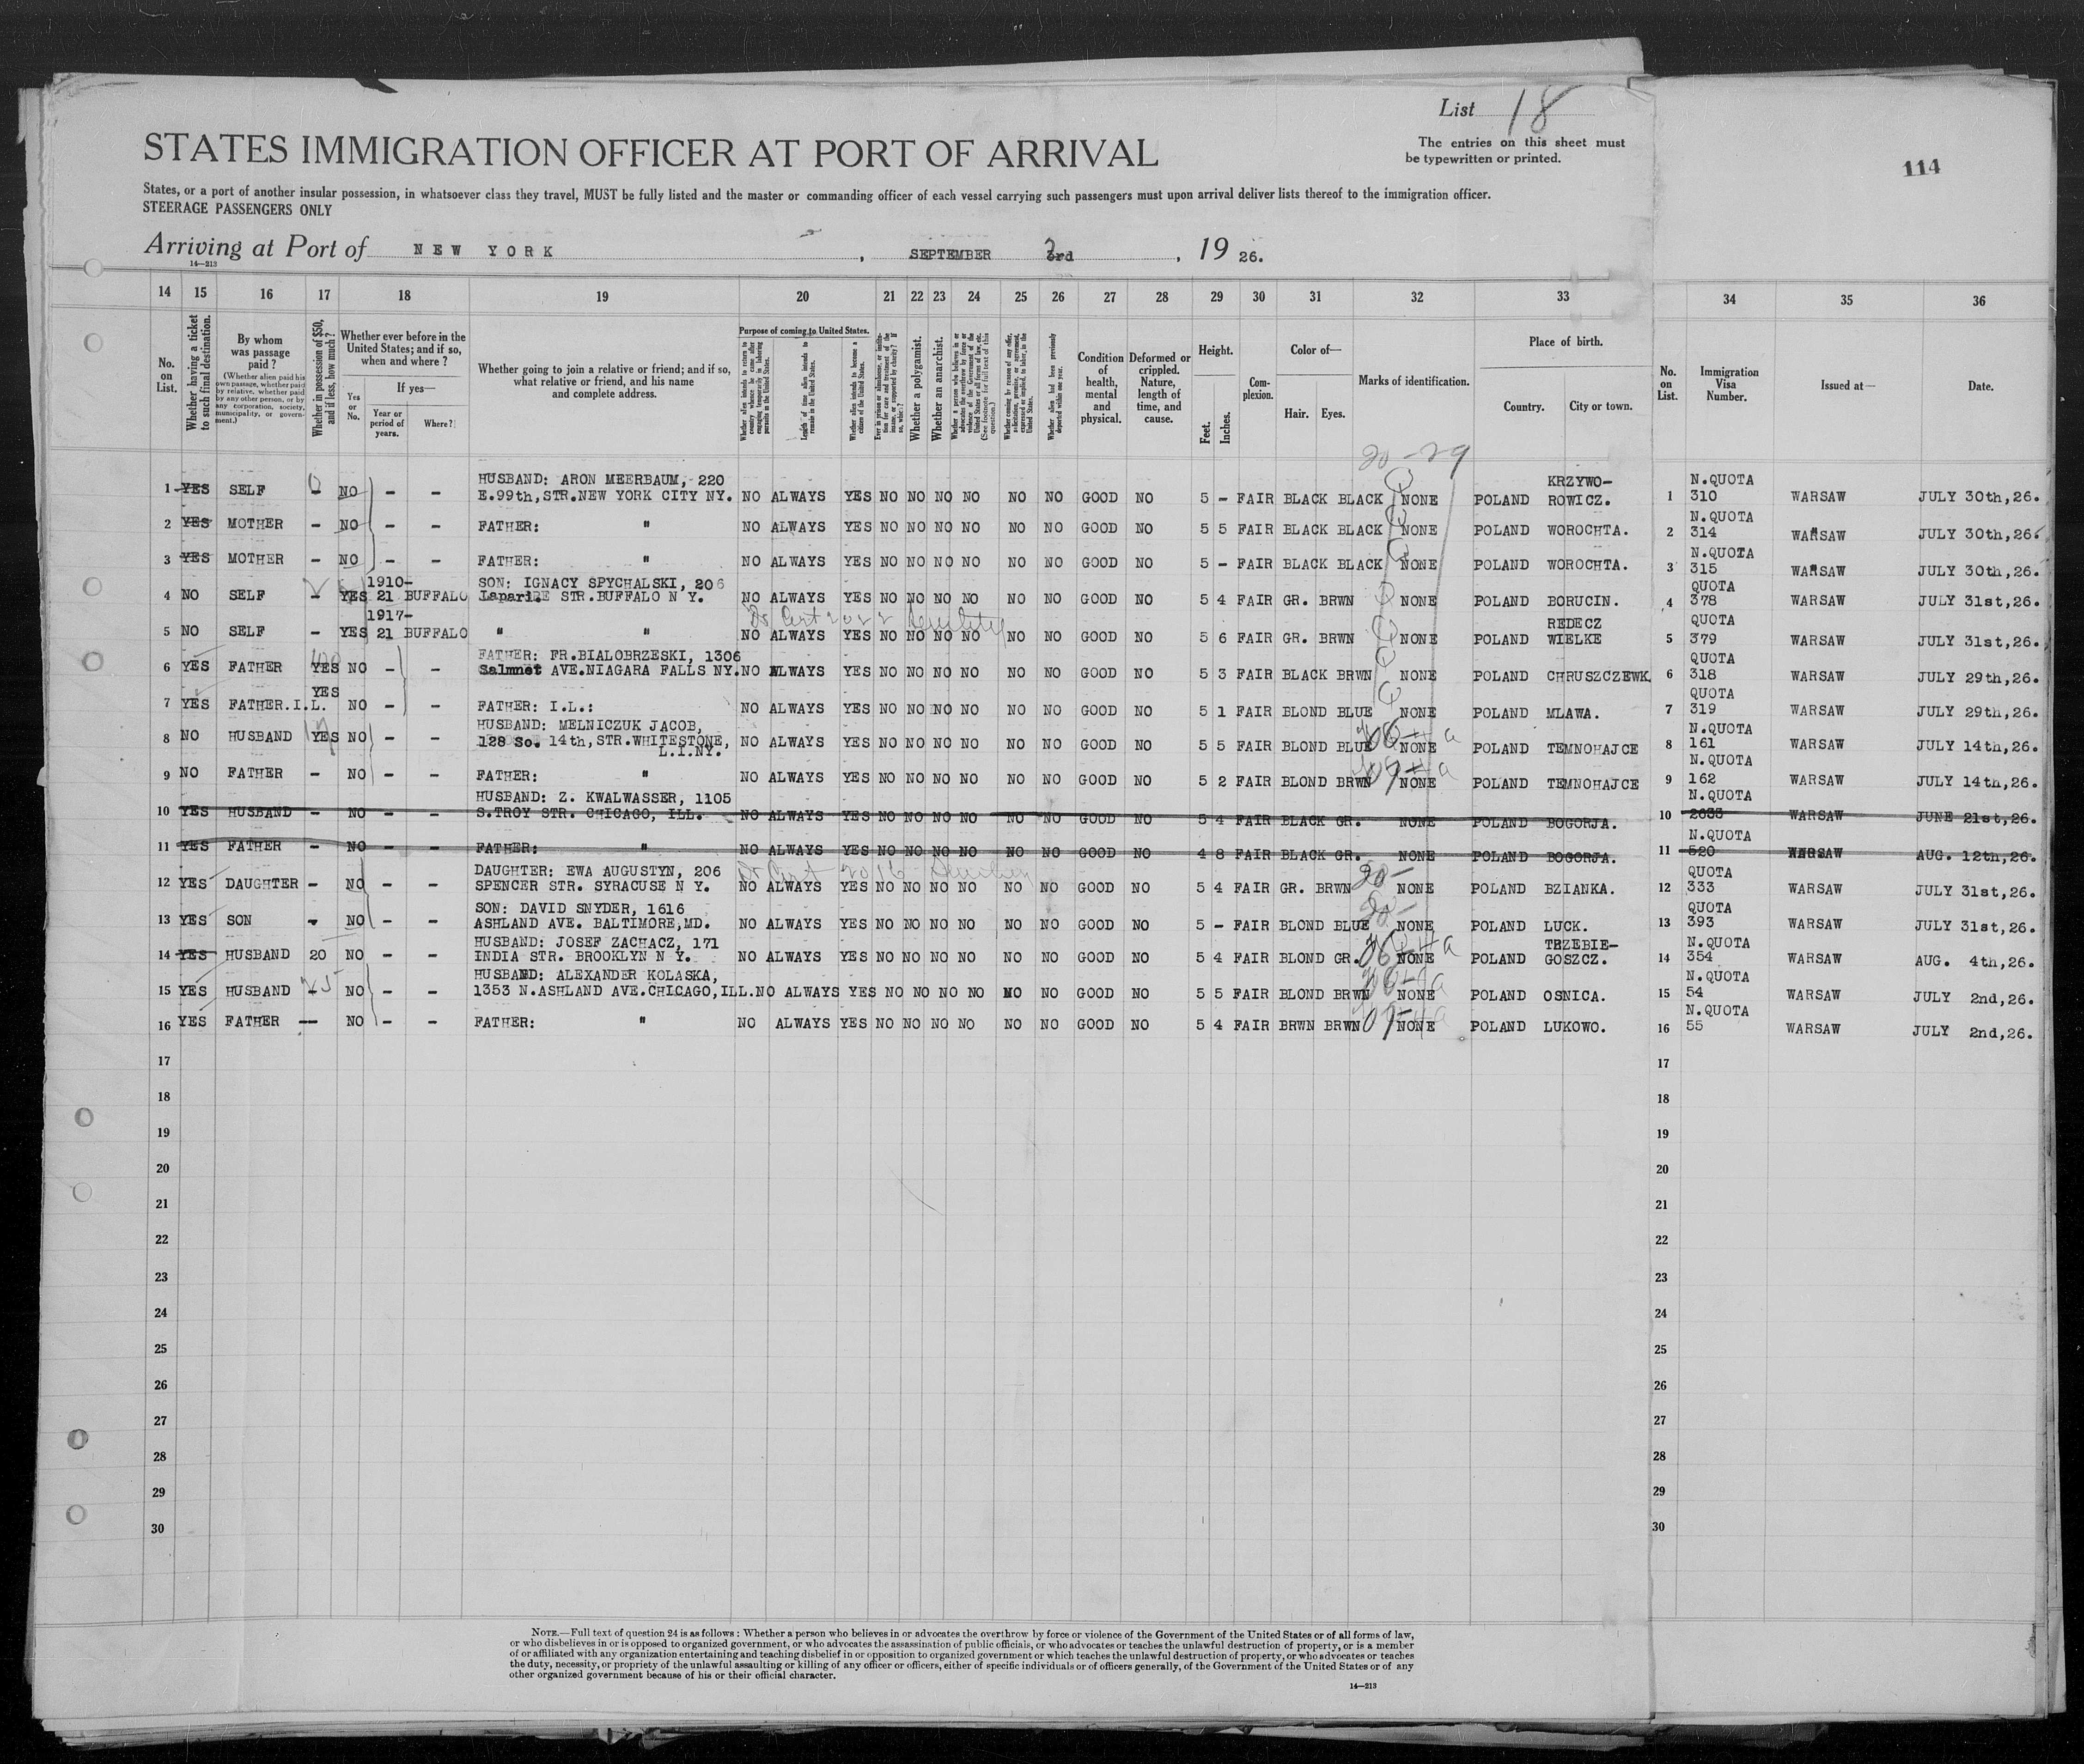 List 18
The entries on this sheet must
be typewritten or printed.
114
STATES IMMIGRATION OFFICER AT PORT OF ARRIVAL
States, or a port of another insular possession, in whatsoever class they travel, MUST be fully listed and the master or commanding officer of each vessel carrying such passengers must upon arrival deliver lists thereof to the immigration officer.
STEERAGE PASSENGERS ONLY
Arriving at Port of NEW YORK, SEPTEMBER 3rd, 19 26.
14—213
14 15 16 17 18 19 20 21 22 23 24 25 26 27 28 29 30 31 32 33 34 35 36
No. on List.
Whether having a ticket to such final destination.
By whom was passage paid?
(Whether alien paid his own passage, whether paid by relative, whether paid by any other person, or by any corporation, society, municipality, or government.)
Whether in possession of $50, and if less, how much?
Whether ever before in the United States; and if so, when and where?
Yes or No.
If yes—
Year or period of years.
Where?
Whether going to join a relative or friend; and if so, what relative or friend, and his name and complete address.
Purpose of coming to United States.
Whether alien intends to return to country whence he came after engaging temporarily in laboring pursuits in the United States.
Length of time alien intends to remain in the United States.
Whether alien intends to become a citizen of the United States.
Ever in prison or almshouse, or institution for care and treatment of the insane, or supported by charity? If so, which?
Whether a polygamist.
Whether an anarchist.
Whether a person who believes in or advocates the overthrow by force or violence of the Government of the United States or all forms of law, etc. (See footnote for full text of this question.)
Whether coming by reason of any offer, solicitation, promise, or agreement, expressed or implied, to labor in the United States.
Whether alien had been previously deported within one year.
Condition of health, mental and physical.
Deformed or crippled. Nature, length of time, and cause.
Height.
Feet. Inches.
Complexion.
Color of—
Hair. Eyes.
Marks of identification.
Place of birth.
Country. City or town.
No. on List.
Immigration Visa Number.
Issued at—
Date.
20-29
HUSBAND: ARON MEERBAUM, 220 KRZYWO- N.QUOTA
1 YES SELF - NO - - E.99th,STR.NEW YORK CITY NY. NO ALWAYS YES NO NO NO NO NO NO GOOD NO 5 - FAIR BLACK BLACK NONE POLAND ROWICZ. 1 310 WARSAW JULY 30th,26.
N.QUOTA
2 YES MOTHER - NO - - FATHER: " NO ALWAYS YES NO NO NO NO NO NO GOOD NO 5 5 FAIR BLACK BLACK NONE POLAND WOROCHTA. 2 314 WARSAW JULY 30th,26.
N.QUOTA
3 YES MOTHER - NO - - FATHER: " NO ALWAYS YES NO NO NO NO NO NO GOOD NO 5 - FAIR BLACK BLACK NONE POLAND WOROCHTA. 3 315 WARSAW JULY 30th,26.
1910- SON: IGNACY SPYCHALSKI, 206 QUOTA
4 NO SELF - YES 21 BUFFALO STR.BUFFALO N Y. NO ALWAYS YES NO NO NO NO NO NO GOOD NO 5 4 FAIR GR. BRWN NONE POLAND BORUCIN. 4 378 WARSAW JULY 31st,26.
1917- REDECZ QUOTA
5 NO SELF - YES 21 BUFFALO " " NO ALWAYS YES NO NO NO NO NO NO GOOD NO 5 6 FAIR GR. BRWN NONE POLAND WIELKE 5 379 WARSAW JULY 31st,26.
FATHER: FR.BIALOBRZESKI, 1306 QUOTA
6 YES FATHER YES NO - - AVE.NIAGARA FALLS NY. NO ALWAYS YES NO NO NO NO NO NO GOOD NO 5 3 FAIR BLACK BRWN NONE POLAND CHRUSZCZEWK 6 318 WARSAW JULY 29th,26.
YES QUOTA
7 YES FATHER.I.L. NO - - FATHER: I.L.: NO ALWAYS YES NO NO NO NO NO NO GOOD NO 5 1 FAIR BLOND BLUE NONE POLAND MLAWA. 7 319 WARSAW JULY 29th,26.
HUSBAND: MELNICZUK JACOB, N.QUOTA
8 NO HUSBAND YES NO - - 128 So. 14th,STR.WHITESTONE, L.I.NY. NO ALWAYS YES NO NO NO NO NO NO GOOD NO 5 5 FAIR BLOND BLUE NONE POLAND TEMNOHAJCE 8 161 WARSAW JULY 14th,26.
N.QUOTA
9 NO FATHER - NO - - FATHER: " NO ALWAYS YES NO NO NO NO NO NO GOOD NO 5 2 FAIR BLOND BRWN NONE POLAND TEMNOHAJCE 9 162 WARSAW JULY 14th,26.
HUSBAND: Z. KWALWASSER, 1105 N.QUOTA
10 YES HUSBAND - NO - - S.TROY STR. CHICAGO, ILL. NO ALWAYS YES NO NO NO NO NO NO GOOD NO 5 4 FAIR BLACK GR. NONE POLAND BOGORJA. 10 WARSAW JUNE 21st,26.
N.QUOTA
11 YES FATHER - NO - - FATHER: " NO ALWAYS YES NO NO NO NO NO NO GOOD NO 4 8 FAIR BLACK GR. NONE POLAND BOGORJA. 11 520 WARSAW AUG. 12th,26.
DAUGHTER: EWA AUGUSTYN, 206 QUOTA
12 YES DAUGHTER - NO - - SPENCER STR. SYRACUSE N Y. NO ALWAYS YES NO NO NO NO NO NO GOOD NO 5 4 FAIR GR. BRWN NONE POLAND BZIANKA. 12 333 WARSAW JULY 31st,26.
SON: DAVID SNYDER, 1616 QUOTA
13 YES SON - NO - - ASHLAND AVE. BALTIMORE,MD. NO ALWAYS YES NO NO NO NO NO NO GOOD NO 5 - FAIR BLOND BLUE NONE POLAND LUCK. 13 393 WARSAW JULY 31st,26.
HUSBAND: JOSEF ZACHACZ, 171 TRZEBIE- N.QUOTA
14 YES HUSBAND 20 NO - - INDIA STR. BROOKLYN N Y. NO ALWAYS YES NO NO NO NO NO NO GOOD NO 5 4 FAIR BLOND GR. NONE POLAND GOSZCZ. 14 354 WARSAW AUG. 4th,26.
HUSBAND: ALEXANDER KOLASKA, N.QUOTA
15 YES HUSBAND - NO - - 1353 N.ASHLAND AVE.CHICAGO,ILL. NO ALWAYS YES NO NO NO NO NO NO GOOD NO 5 5 FAIR BLOND BRWN NONE POLAND OSNICA. 15 54 WARSAW JULY 2nd,26.
N.QUOTA
16 YES FATHER - NO - - FATHER: " NO ALWAYS YES NO NO NO NO NO NO GOOD NO 5 4 FAIR BRWN BRWN NONE POLAND LUKOWO. 16 55 WARSAW JULY 2nd,26.
17 17
18 18
19 19
20 20
21 21
22 22
23 23
24 24
25 25
26 26
27 27
28 28
29 29
30 30
NOTE.—Full text of question 24 is as follows: Whether a person who believes in or advocates the overthrow by force or violence of the Government of the United States or of all forms of law,
or who disbelieves in or is opposed to organized government, or who advocates the assassination of public officials, or who advocates or teaches the unlawful destruction of property, or is a member
of or affiliated with any organization entertaining and teaching disbelief in or opposition to organized government or which teaches the unlawful destruction of property, or who advocates or teaches
the duty, necessity, or propriety of the unlawful assaulting or killing of any officer or officers, either of specific individuals or of officers generally, of the Government of the United States or of any
other organized government because of his or their official character.
14—213